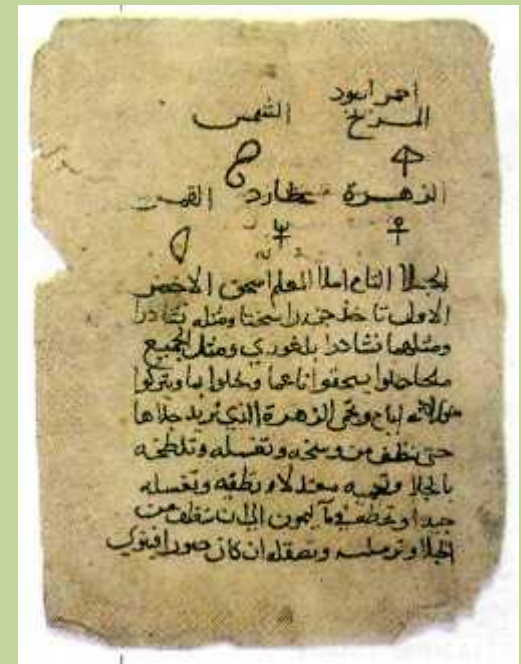 احمر اسود
المريخ الشمس
الزهرة عطارد القمر
الجلا التاع املا المعلم اسحق الاخضر
الاولى تاخذ جنزارا سحتا ومثله نشادرا
ومثلهما نشادرا بلغوري ومثل الجميع
ملحا حلوا يسحقوا ناعما ويحلوا بما ويتركوا
ايام وتحمى الزهرة الذي تريد جلاها
حتى ينظف من وسخه وتغسله وتلطخه
بالجلا وتحميه معتدلا وتطفيه وتغسله
جيدا وتحطه في مآ ليمون الى ان ينظف من
الجلا وترمله وتصقله ان كان